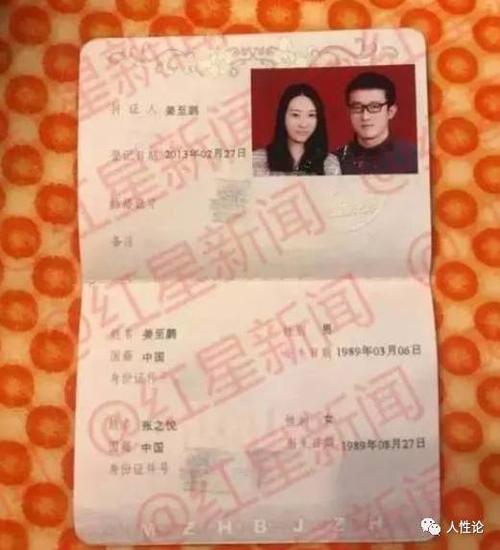 持证人 姜至鹏
登记日期 2013年02月27日
结婚证字号
备注
姓名 姜至鹏 性别 男
国籍 中国 出生日期 1989年03月06日
身份证件号
姓名 张之悦 性别 女
国籍 中国 出生日期 1989年08月27日
身份证件号
M Z H B J Z H
@红星新闻
@红星新闻
@红星新闻
人性论